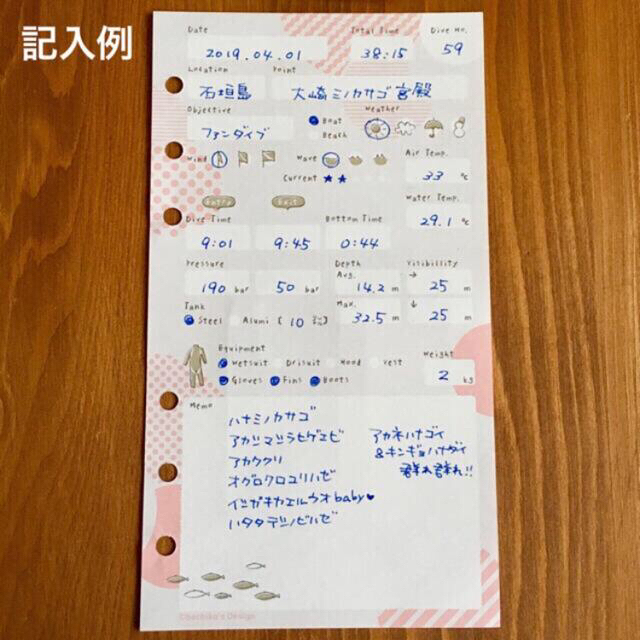 記入例
Date Total Time Dive No.
2019.04.01 38:15 59
Location Point
石垣島 大崎ミノカサゴ宮殿
Objective Weather
ファンダイブ Boat
Beach
Wind Wave Air Temp.
Current ★★ 33 ℃
Entry Exit Water Temp.
Dive Time Bottom Time 29.1 ℃
9:01 9:45 0:44
Pressure Depth Visibility
Avg. →
190 bar 50 bar 14.2 m 25 m
Tank Max. ↓
Steel Alumi [ 10 ] 32.5 m 25 m
Equipment Weight
Wetsuit Drisuit Hood Vest
Gloves Fins Boots 2 kg
Memo
ハナミノカサゴ
アカシマシラヒゲエビ
アカククリ
オグロクロユリハゼ
イシガキカエルウオbaby♥
ハタタテシノビハゼ
アカネハナゴイ
&キンギョハナダイ
群れ群れ!!
©bachika's Design